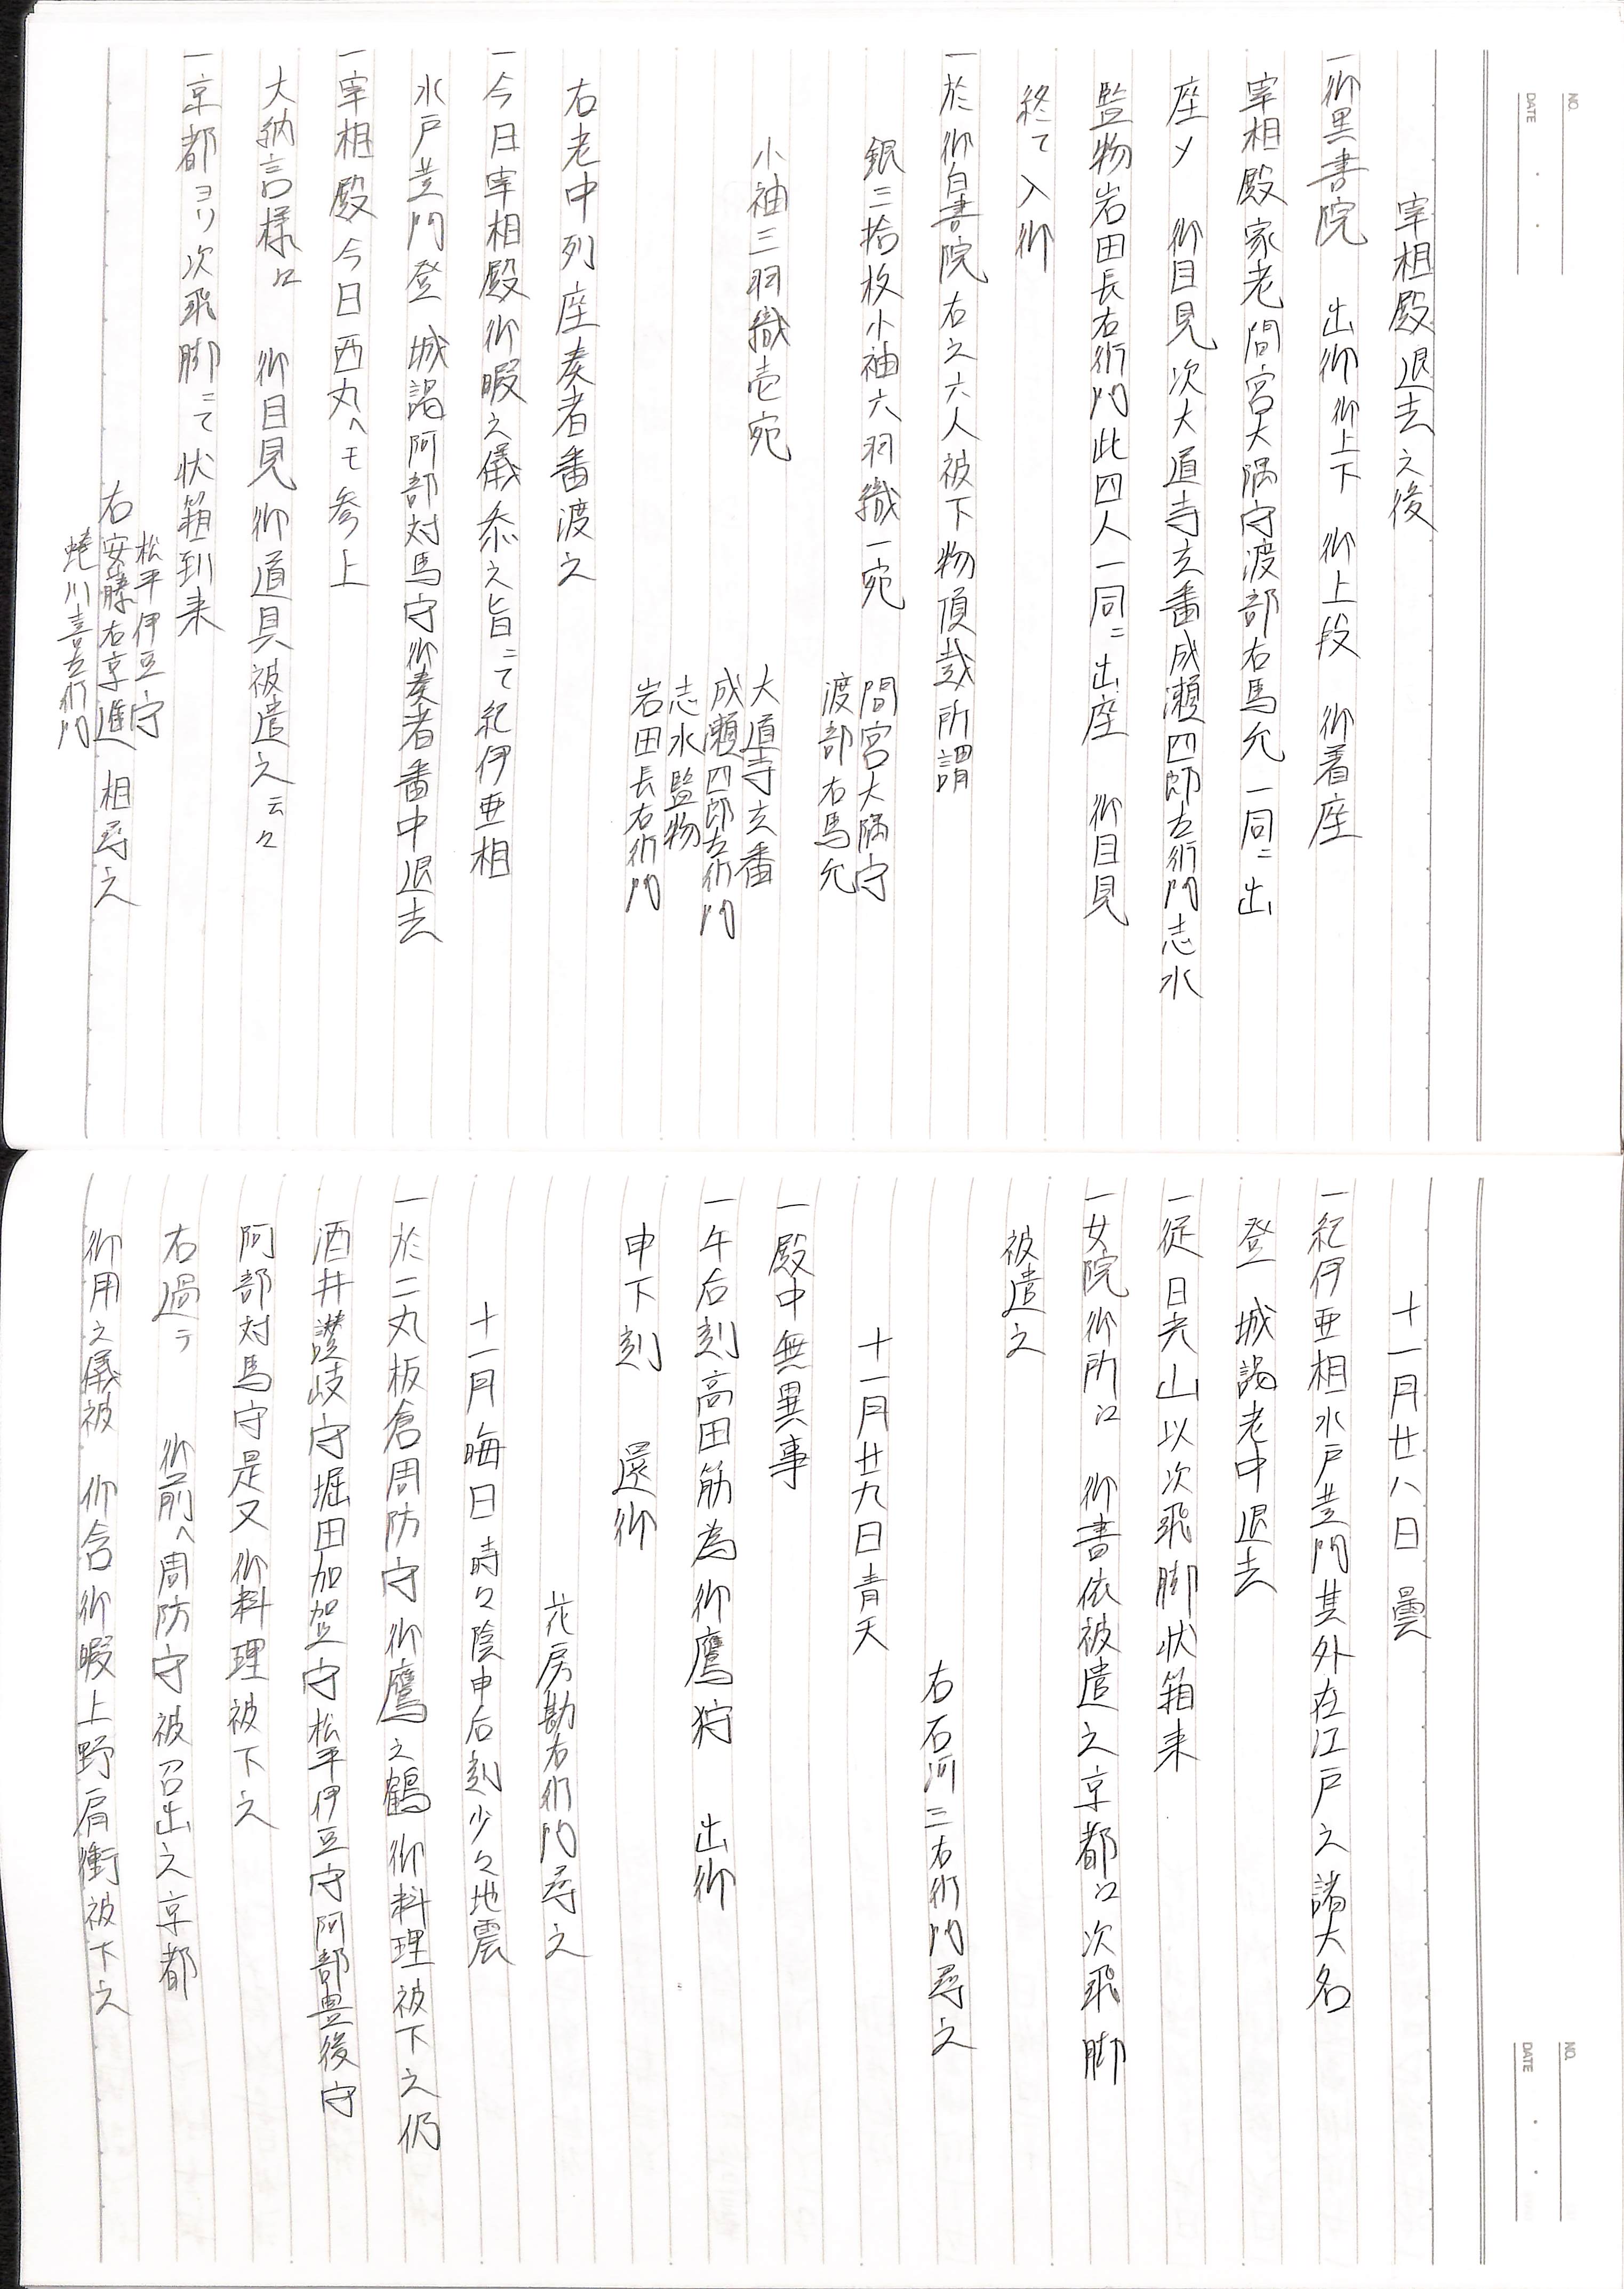 宰相殿退去之後
一御黒書院　出御御上下　御上段　御着座
宰相殿家老間宮大隅守渡部右馬允一同ニ出
座〆　御目見次大道寺玄番成瀬四郎左衛門志水
監物岩田長右衛門此四人一同ニ出座　御目見
終て入御
一於御白書院右之六人被下物頂戴所謂
銀三拾枚小袖六羽織一宛　間宮大隅守
渡部右馬允
小袖三羽織壱宛　大道寺玄番
成瀬四郎左衛門
志水監物
岩田長右衛門
右老中列座奏者番渡之
一今日宰相殿御暇之儀忝之旨ニて紀伊亜相
水戸黄門登　城謁阿部対馬守御奏者番中退去
一宰相殿今日西丸ヘモ参上
大納言様江　御目見御道具被遣之云々
一京都ヨリ次飛脚ニて状箱到来
松平伊豆守
右安藤右京進　相尋之
蜷川喜左衛門
NO.
DATE
十一月廿八日　曇
一紀伊亜相水戸黄門其外在江戸之諸大名
登　城謁老中退去
一従日光山以次飛脚状箱来
一女院御所江　御書依被遣之京都江次飛脚
被遣之
右石河三右衛門尋之
十一月廿九日青天
一殿中無異事
一午后刻高田筋為御鷹狩　出御
申下刻　還御
花房勘右衛門尋之
十一月晦日時々陰申后刻少々地震
一於二丸板倉周防守御鷹之鶴御料理被下之仍
酒井讃岐守堀田加賀守松平伊豆守阿部豊後守
阿部対馬守是又御料理被下之
右過テ　御前ヘ周防守被召出之京都
御用之儀被　仰含御暇上野肩衝被下之
NO.
DATE